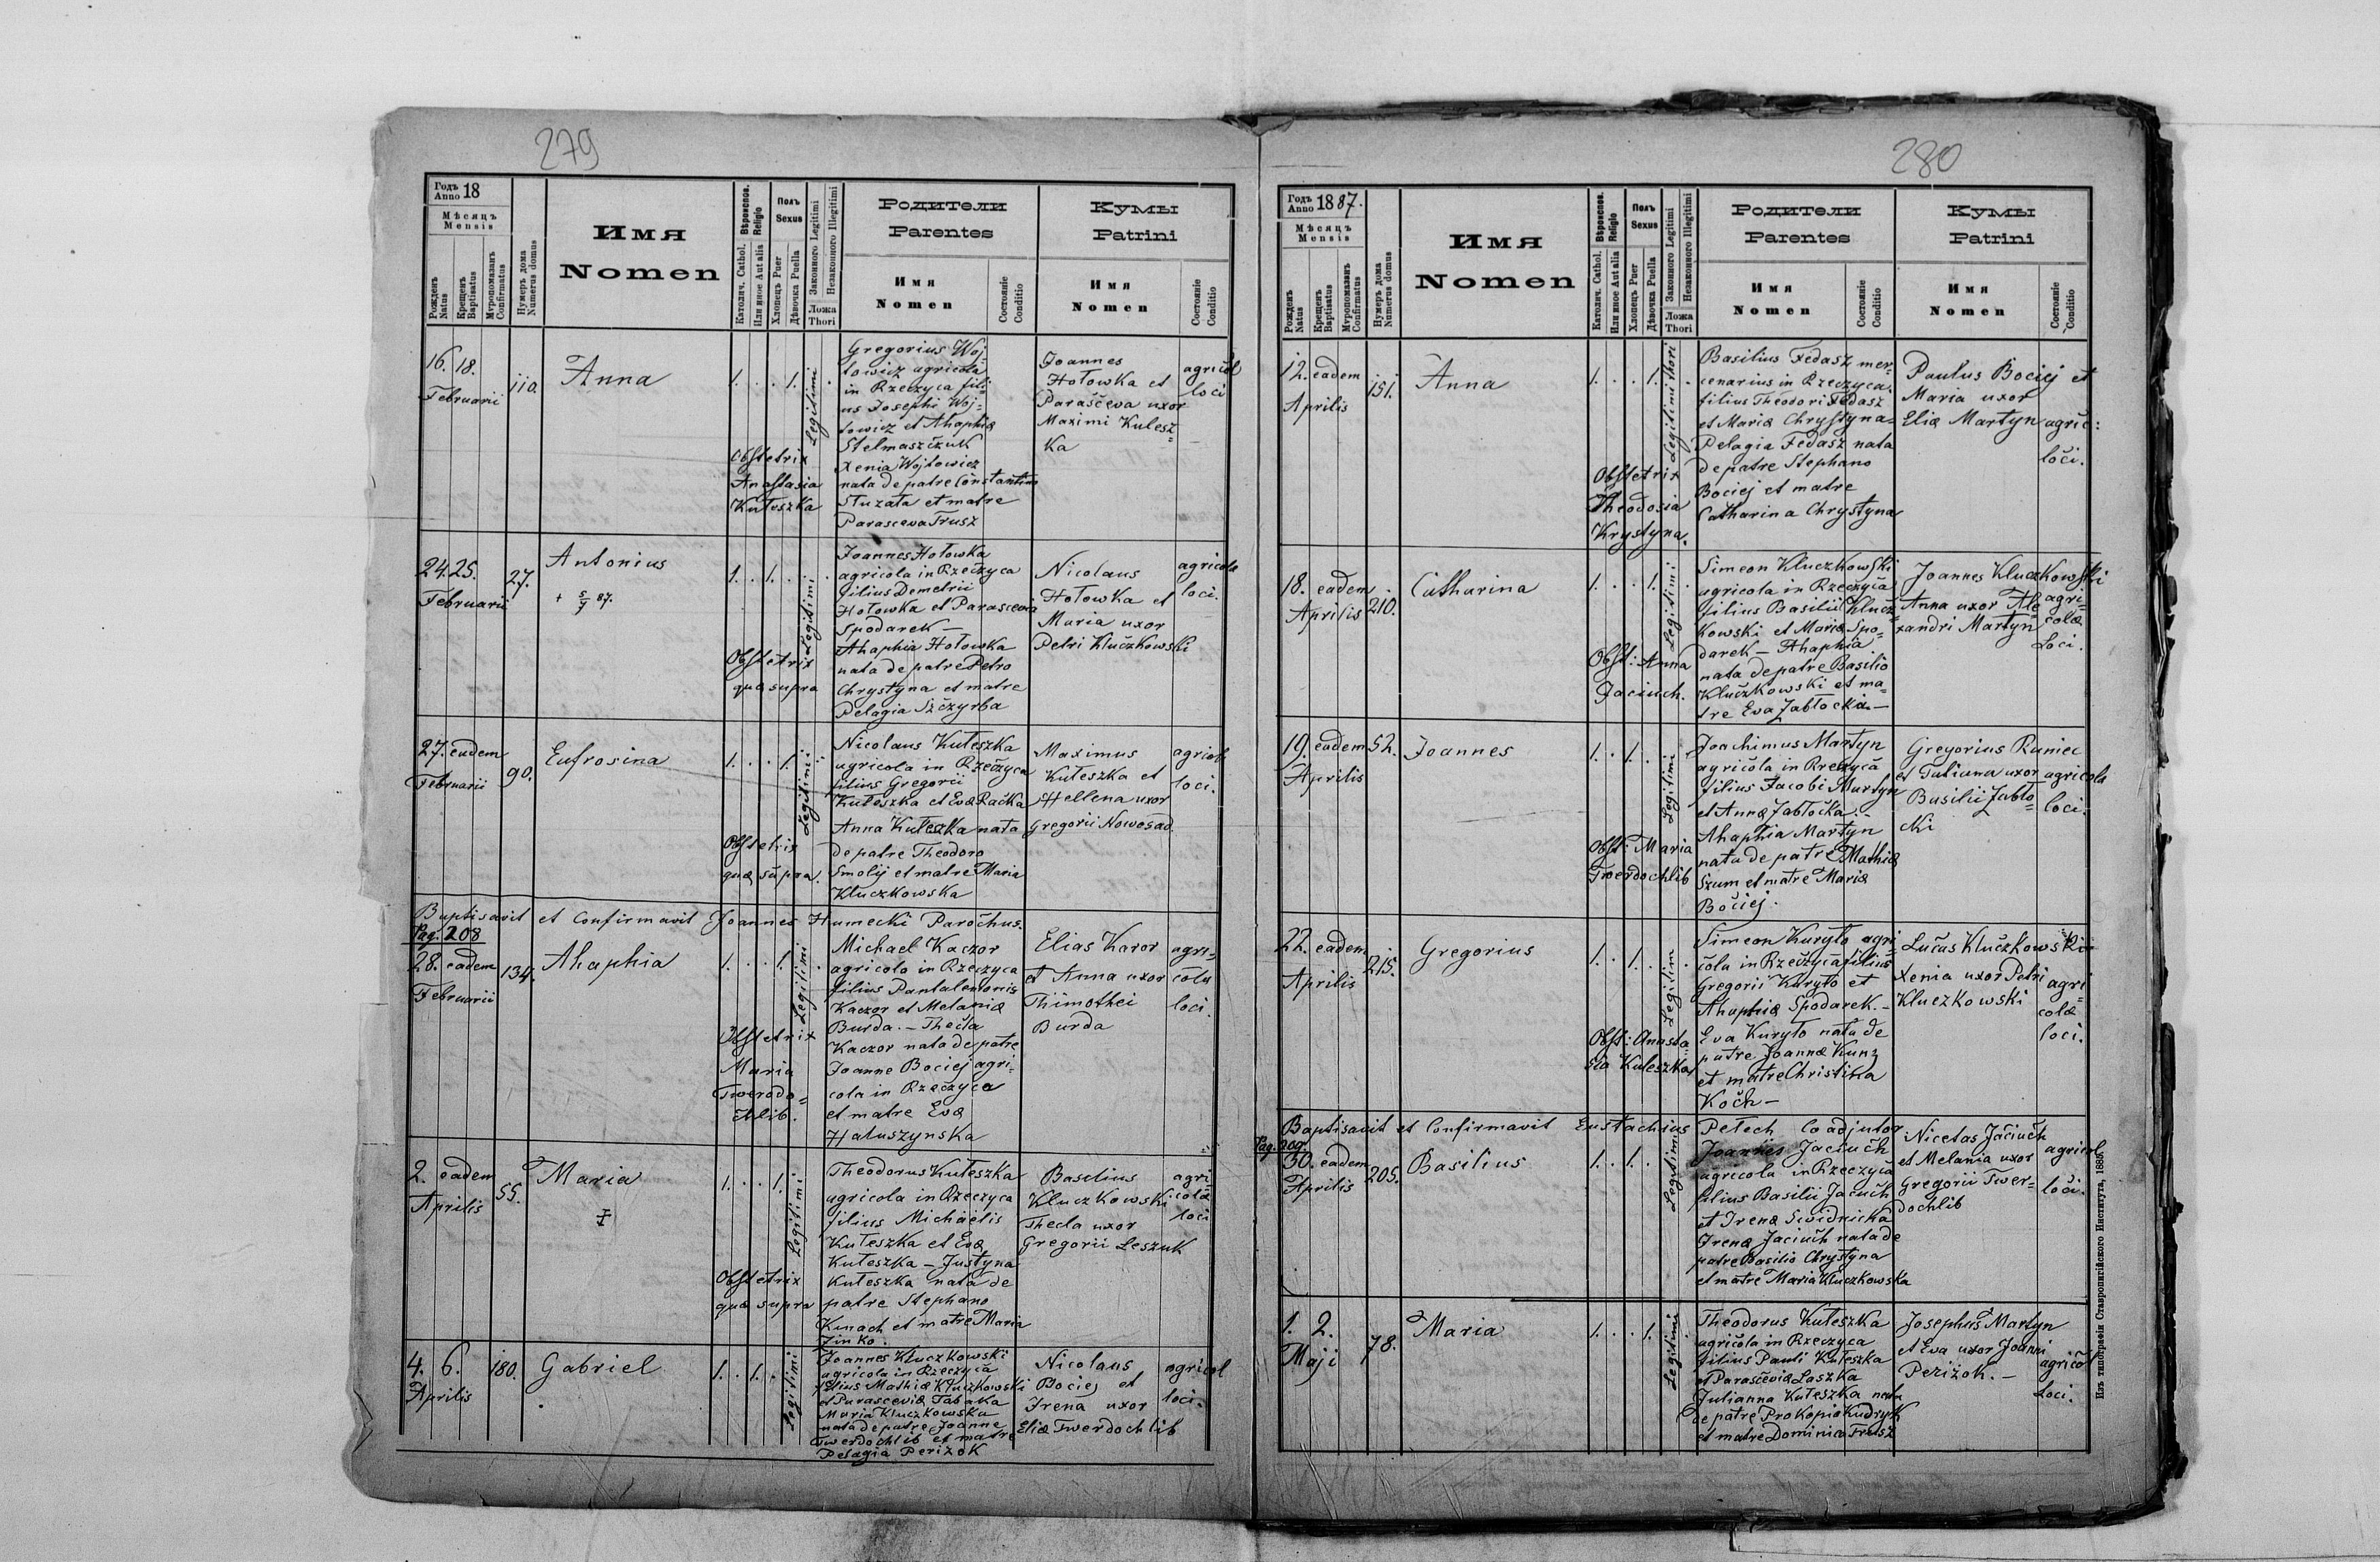 279
Годъ Anno 18
Мѣсяцъ
Mensis
Рожденъ Natus
Крещенъ Baptisatus
Мѵропомазанъ Confirmatus
Нумеръ дома Numerus domus
Имя
Nomen
Вѣроиспов. Religio
Католич. Cathol.
Или иное Aut alia
Полъ Sexus
Хлопецъ Puer
Дѣвочка Puella
Законного Legitimi
Незаконного Illegitimi
Ложа Thori
Родители
Parentes
Имя
Nomen
Состояніе Conditio
Кумы
Patrini
Имя
Nomen
Состояніе Conditio
16. 18.
Februarii
110.
Anna
1. . . 1. .
Legitimi
Obstetrix
Anastasia
Kułeszka
Gregorius Woj-
towicz agricola
in Rzeczyca fili-
us Josephi Woj-
towicz et Ahaphiæ
Stelmaszczuk
Xenia Wojtowicz
nata de patre Constantino
Stuzata et matre
Parasceva Trusz
Joannes
Hołowka et
Parasčeva uxor
Maximi Kulesz=
ka
agricol
loci
24. 25.
Februarii
27.
Antonius
+ 5/7 87.
1. . 1. . .
Legitimi
Obstetrix
quæ supra
Joannes Hołowka
agricola in Rzeczyca
filius Demetrii
Hołowka et Parascevia
Spodarek —
Ahaphia Hołowka
nata de patre Petro
Chrystyna et matre
Pelagia Szczyrba
Nicolaus
Hołowka et
Maria uxor
Petri Kluczkowski
agricola
loci.
27. eadem
Februarii
90.
Eufrosina
1. . . 1. .
Legitimi
Obstetrix
quæ supra.
Nicolaus Kułeszka
agricola in Rzeczyca
filius Gregorii
Kułeszka et Evæ Račka
Anna Kułeszka nata
de patre Theodoro
Smolij et matre Maria
Kluczkowska
Maximus
Kułeszka et
Hellena uxor
Gregorii Nowosad
agricol
loci.
Baptisavit et Confirmavit Joannes Humecki Parochus.
Pag. 208
28. eadem
Februarii
134.
Ahaphia
1. . . 1. .
Legitimi
Obstetrix
Maria
Twerdo=
chlib.
Michael Kaczor
agricola in Rzeczyca
filius Pantalemonis
Kaczor et Melaniæ
Burda. — Thecla
Kaczor nata de patre
Joanne Bociej agri-
cola in Rzeczyca
et matre Eva
Hałuszynska
Elias Karor
et Anna uxor
Thimothei
Burda
agri-
cola
loci.
2. eadem
Aprilis
55.
Maria
1. . . 1. .
Legitimi
Obstetrix
quæ supra
Theodorus Kułeszka
agricola in Rzeczyca
filius Michaelis
Kułeszka et Evæ
Kułeszka — Justyna
Kułeszka nata de
patre Stephano
Kunach et matre Maria
Zinko.
Basilius
Kluczkowski
Thecla uxor
Gregorii Leszuk
agri-
colæ
loci
4. 6.
Aprilis
180.
Gabriel
1. . 1. . .
Legitimi
Joannes Kluczkowski
agricola in Rzeczyca
filius Mathiæ Kluczkowski
et Parasceviæ Tabaka
Maria Kluczkowska
nata de patre Joanne
Twerdochlib et matre
Pelagia Perizok
Nicolaus
Bociej et
Irena uxor
Eliæ Twerdochlib
agricol
loci.
280
Годъ Anno 1887.
Мѣсяцъ
Mensis
Рожденъ Natus
Крещенъ Baptisatus
Мѵропомазанъ Confirmatus
Нумеръ дома Numerus domus
Имя
Nomen
Вѣроиспов. Religio
Католич. Cathol.
Или иное Aut alia
Полъ Sexus
Хлопецъ Puer
Дѣвочка Puella
Законного Legitimi
Незаконного Illegitimi
Ложа Thori
Родители
Parentes
Имя
Nomen
Состояніе Conditio
Кумы
Patrini
Имя
Nomen
Состояніе Conditio
12. eadem
Aprilis
151.
Anna
1. . . 1. .
Legitimi thori
Obstetrix
Theodosia
Krystyna.
Basilius Fedasz mer-
cenarius in Rzeczyca.
filius Theodori Fedasz
et Mariæ Chrystyna-
Pelagia Fedasz nata
de patre Stephano
Bociej et matre
Catharina Chrystyna
Paulus Bociej et
Maria uxor
Eliæ Martyn
agric:
loci.
18. eadem
Aprilis
210.
Catharina
1. . . 1. .
Legitimi
Obst: Anna
Jaciuch.
Simeon Kluczkowski
agricola in Rzeczyca
filius Basilii Klucz=
kowski et Mariæ Spo-
darek — Ahaphia
nata de patre Basilio
Kluczkowski et ma-
tre Eva Jabłocka. —
Joannes Kluczkowski
Anna uxor Ale
xandri Martyn
agri-
colæ
Loci.
19. eadem
Aprilis
52.
Joannes
1. . 1. . .
Legitimi
Obst: Maria
Twerdochlib
Joachimus Martyn
agricola in Rzeczyca
filius Jacobi Martyn
et Annæ Jabłocka. -
Ahaphia Martyn
nata de patre Mathia
Szum et matre Maria
Bociej.
Gregorius Runiec
et Juliana uxor
Basilii Jabło=
cki
agricola
loci.
22. eadem
Aprilis
215.
Gregorius
1. . 1. . .
Legitim
Obst: Anasta
sia Kuleszka
Simeon Kuryło agri=
cola in Rzeczyca filius
Gregorii Kuryło et
Ahaphiæ Spodarek. -
Eva Kuryło nata de
patre Joanne Kunz
et matre Christina
Koch —
Lucas Kluczkowski
Xenia uxor Petri
Kluczkowski
agri=
colæ
loci.
Baptisavit et Confirmavit Eustachius Petech Coadjutor
Pag. 209
30. eadem
Aprilis
205.
Basilius
1. . 1. . .
Legitimi
Joannes Jaciuch
agricola in Rzeczyca
filius Basilii Jaciuch
et Irenæ Swidnicka
Irena Jaciuch nata de
patre Basilio Chrystyna
et matre Maria Kluczkowska
Nicetas Jaciuch
et Melania uxor
Gregorii Twer-
dochlib
agricol
loci.
1. 2.
Maji
78.
Maria
1. . . 1. .
Legitimi
Theodorus Kułeszka
agricola in Rzeczyca
filius Pauli Kułeszka
et Parasceviæ Laszka
Julianna Kułeszka nata
de patre Prokopio Kudryk
et matre Dominica Trusz
Josephus Martyn
et Eva uxor Joanni
Perizok. —
agricol
Loci.
Изъ типографіи Ставропигійского Института, 1885.